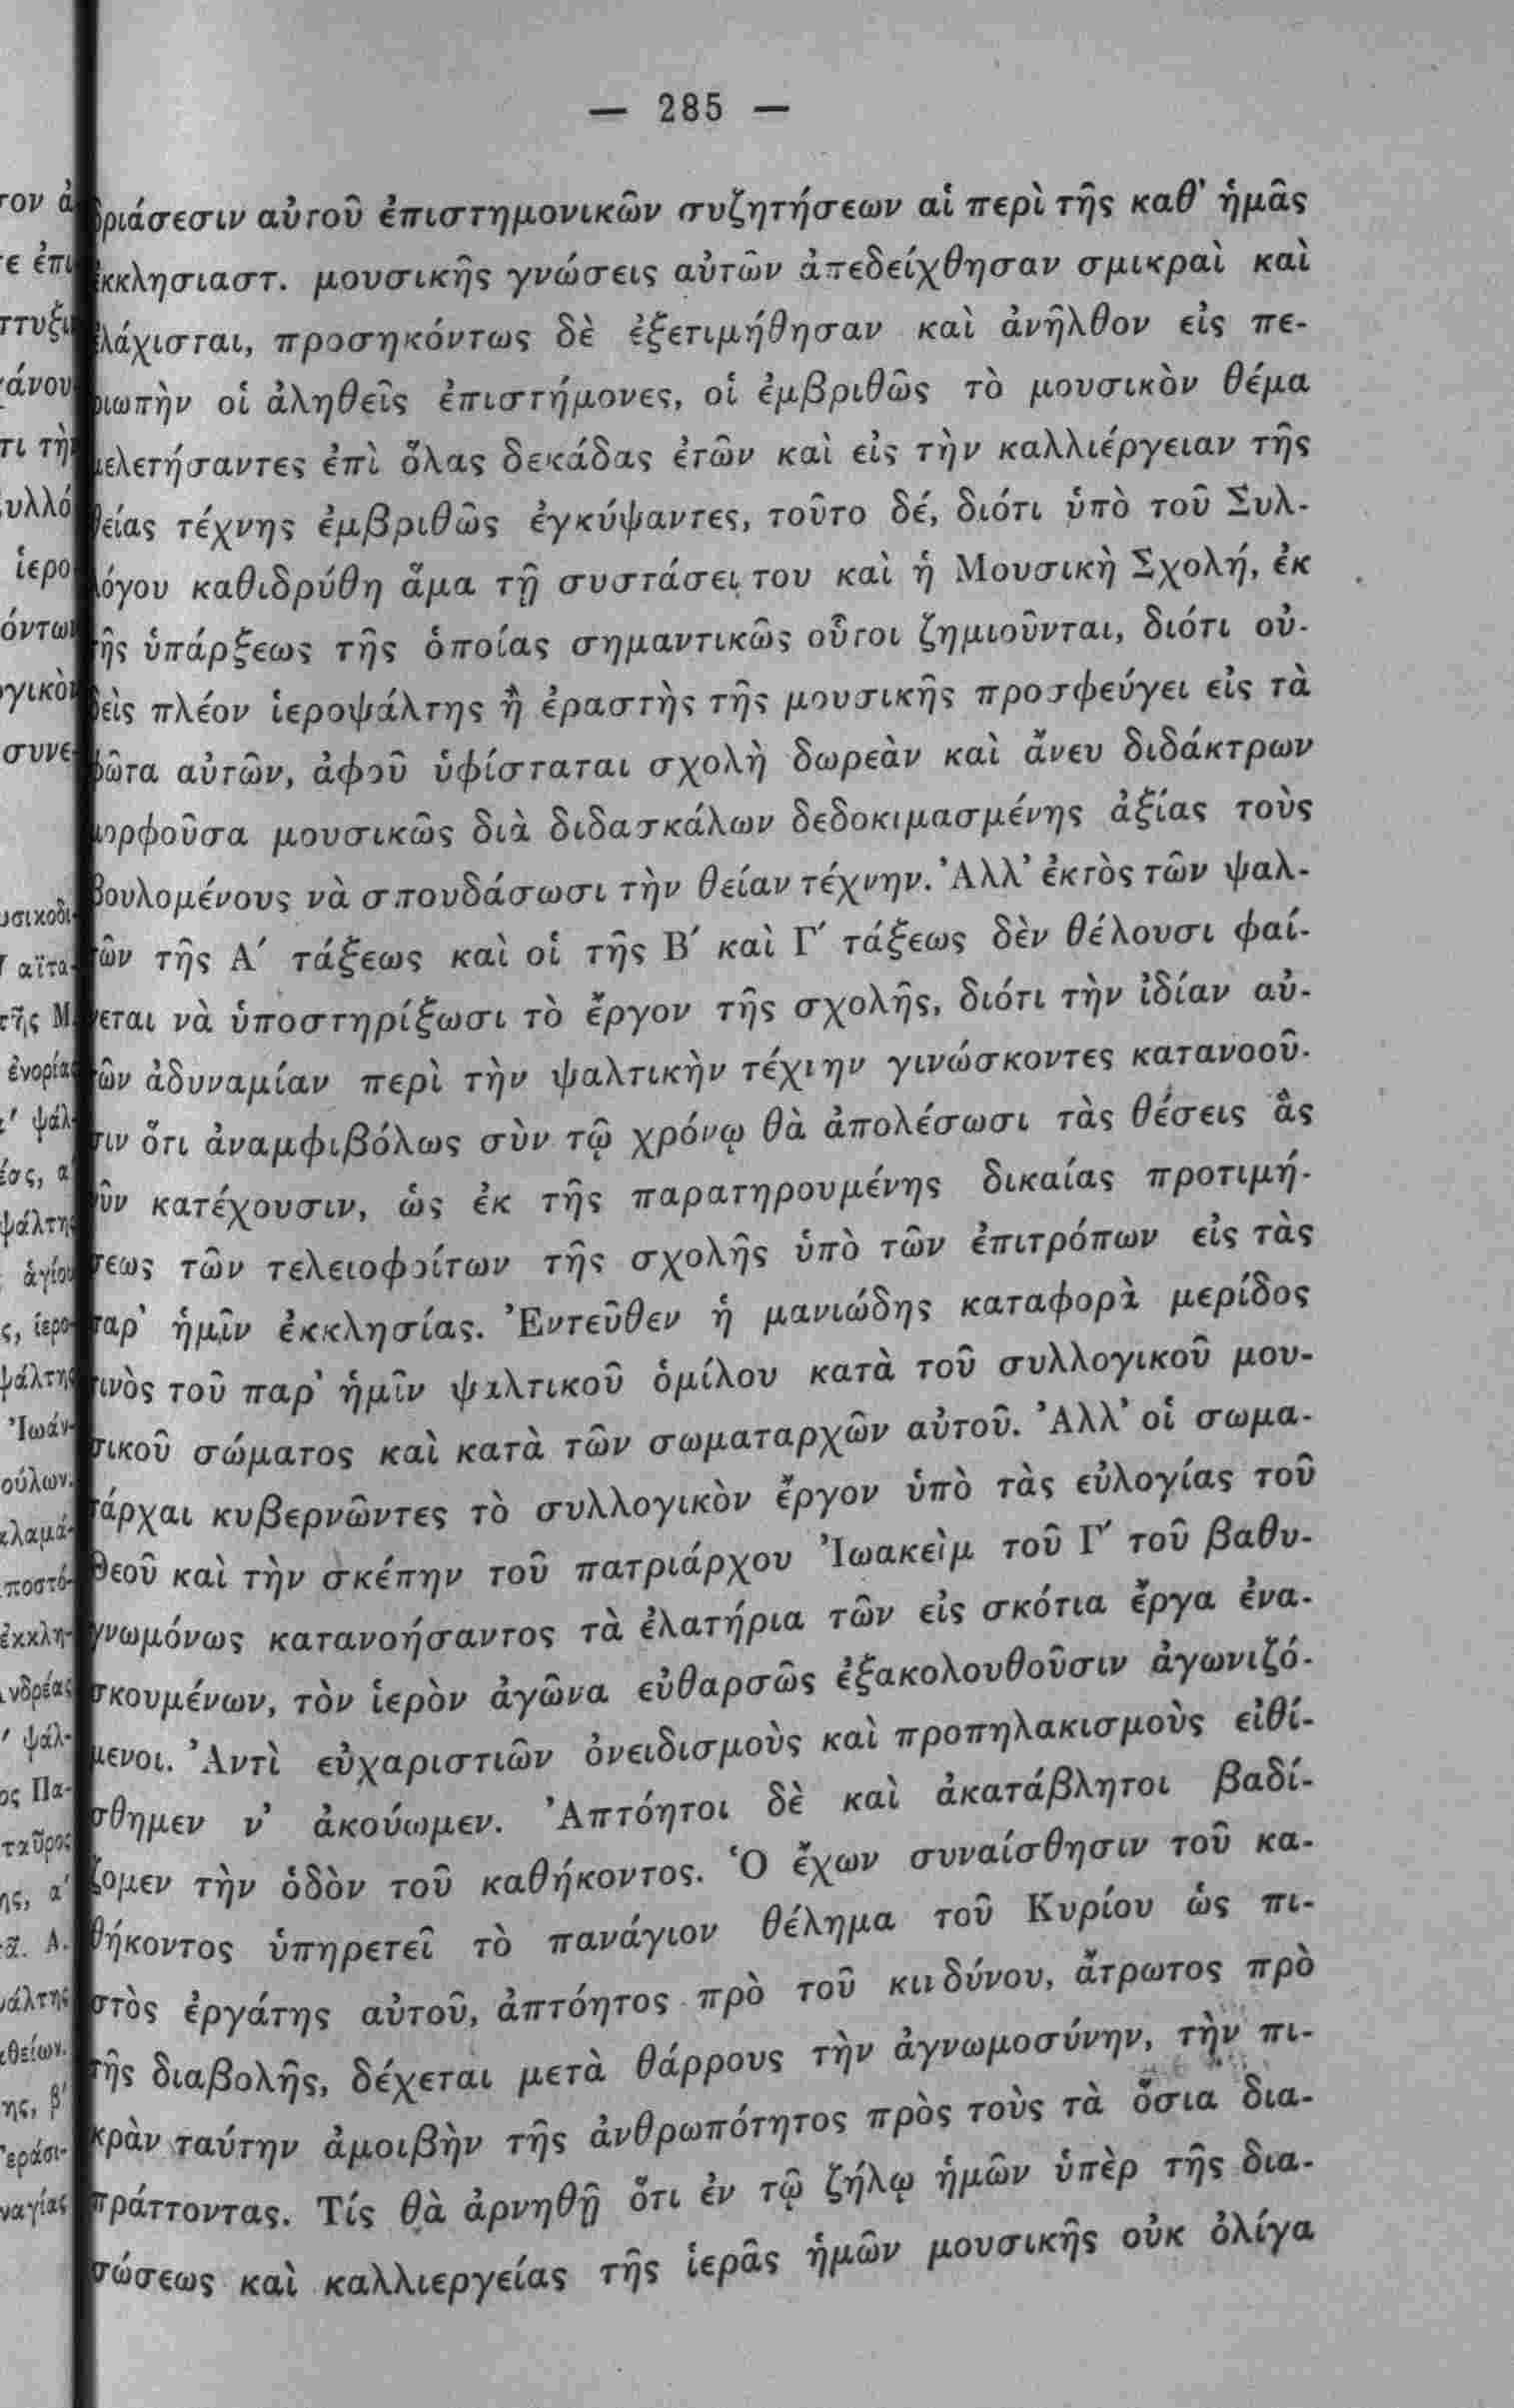 — 285 —
δριάσεσιν αὐτοῦ ἐπιστημονικῶν συζητήσεων αἱ περὶ τῆς καθ' ἡμᾶς
ἐκκλησιαστ. μουσικῆς γνώσεις αὐτῶν ἀπεδείχθησαν σμικραὶ καὶ
ἐλάχισται, προσηκόντως δὲ ἐξετιμήθησαν καὶ ἀνῆλθον εἰς πε-
ριωπὴν οἱ ἀληθεῖς ἐπιστήμονες, οἱ ἐμβριθῶς τὸ μουσικὸν θέμα
μελετήσαντες ἐπὶ ὅλας δεκάδας ἐτῶν καὶ εἰς τὴν καλλιέργειαν τῆς
θείας τέχνης ἐμβριθῶς ἐγκύψαντες, τοῦτο δέ, διότι ὑπὸ τοῦ Συλ-
λόγου καθιδρύθη ἅμα τῇ συστάσει του καὶ ἡ Μουσικὴ Σχολή, ἐκ
τῆς ὑπάρξεως τῆς ὁποίας σημαντικῶς οὗτοι ζημιοῦνται, διότι οὐ-
δεὶς πλέον ἱεροψάλτης ἢ ἐραστὴς τῆς μουσικῆς προσφεύγει εἰς τὰ
φῶτα αὐτῶν, ἀφοῦ ὑφίσταται σχολὴ δωρεὰν καὶ ἄνευ διδάκτρων
μορφοῦσα μουσικῶς διὰ διδασκάλων δεδοκιμασμένης ἀξίας τοὺς
βουλομένους νὰ σπουδάσωσι τὴν θείαν τέχνην. Ἀλλ' ἐκτὸς τῶν ψαλ-
τῶν τῆς Α΄ τάξεως καὶ οἱ τῆς Β΄ καὶ Γ΄ τάξεως δὲν θέλουσι φαί-
νεται νὰ ὑποστηρίξωσι τὸ ἔργον τῆς σχολῆς, διότι τὴν ἰδίαν αὐ-
τῶν ἀδυναμίαν περὶ τὴν ψαλτικὴν τέχνην γινώσκοντες κατανοοῦ-
σιν ὅτι ἀναμφιβόλως σὺν τῷ χρόνῳ θὰ ἀπολέσωσι τὰς θέσεις ἃς
νῦν κατέχουσιν, ὡς ἐκ τῆς παρατηρουμένης δικαίας προτιμή-
σεως τῶν τελειοφοίτων τῆς σχολῆς ὑπὸ τῶν ἐπιτρόπων εἰς τὰς
παρ' ἡμῖν ἐκκλησίας. Ἐντεῦθεν ἡ μανιώδης καταφορὰ μερίδος
τινὸς τοῦ παρ' ἡμῖν ψαλτικοῦ ὁμίλου κατὰ τοῦ συλλογικοῦ μου-
σικοῦ σώματος καὶ κατὰ τῶν σωματαρχῶν αὐτοῦ. Ἀλλ' οἱ σωμα-
τάρχαι κυβερνῶντες τὸ συλλογικὸν ἔργον ὑπὸ τὰς εὐλογίας τοῦ
Θεοῦ καὶ τὴν σκέπην τοῦ πατριάρχου Ἰωακεὶμ τοῦ Γ΄ τοῦ βαθυ-
γνωμόνως κατανοήσαντος τὰ ἐλατήρια τῶν εἰς σκότια ἔργα ἐνα-
σκουμένων, τὸν ἱερὸν ἀγῶνα εὐθαρσῶς ἐξακολουθοῦσιν ἀγωνιζό-
μενοι. Ἀντὶ εὐχαριστιῶν ὀνειδισμοὺς καὶ προπηλακισμοὺς εἰθί-
σθημεν ν' ἀκούωμεν. Ἀπτόητοι δὲ καὶ ἀκατάβλητοι βαδί-
ζομεν τὴν ὁδὸν τοῦ καθήκοντος. Ὁ ἔχων συναίσθησιν τοῦ κα-
θήκοντος ὑπηρετεῖ τὸ πανάγιον θέλημα τοῦ Κυρίου ὡς πι-
στὸς ἐργάτης αὐτοῦ, ἀπτόητος πρὸ τοῦ κινδύνου, ἄτρωτος πρὸ
τῆς διαβολῆς, δέχεται μετὰ θάρρους τὴν ἀγνωμοσύνην, τὴν πι-
κρὰν ταύτην ἀμοιβὴν τῆς ἀνθρωπότητος πρὸς τοὺς τὰ ὅσια δια-
πράττοντας. Τίς θὰ ἀρνηθῇ ὅτι ἐν τῷ ζήλῳ ἡμῶν ὑπὲρ τῆς δια-
σώσεως καὶ καλλιεργείας τῆς ἱερᾶς ἡμῶν μουσικῆς οὐκ ὀλίγα